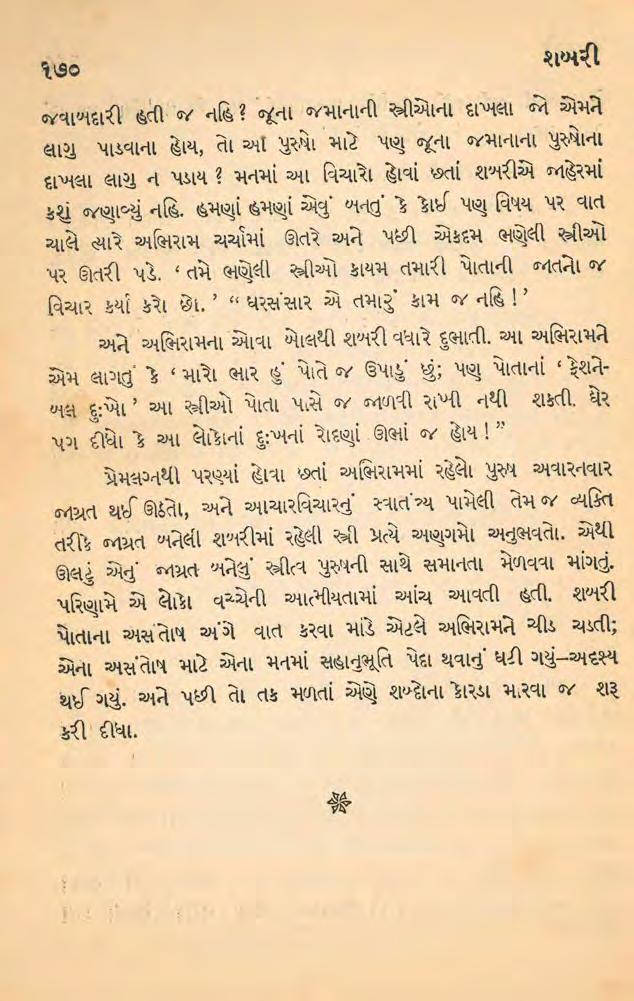 ૧૭૦
શબરી
જવાબદારી હતી જ નહિ? જૂના જમાનાની સ્ત્રીઓના દાખલા જો એમને
લાગુ પાડવાના હોય, તો આ પુરુષો માટે પણ જૂના જમાનાના પુરુષોના
દાખલા લાગુ ન પડાય? મનમાં આ વિચારો હોવાં છતાં શબરીએ જાહેરમાં
કશું જણાવ્યું નહિ. હમણાં હમણાં એવું બનતું કે કોઈ પણ વિષય પર વાત
ચાલે ત્યારે અભિરામ ચર્ચામાં ઊતરે અને પછી એકદમ ભણેલી સ્ત્રીઓ
પર ઊતરી પડે. ‘તમે ભણેલી સ્ત્રીઓ કાયમ તમારી પોતાની જાતનો જ
વિચાર કર્યા કરો છો.’ “ઘરસંસાર એ તમારું કામ જ નહિ!’
અને અભિરામના આવા બોલથી શબરી વધારે દુભાતી. આ અભિરામને
એમ લાગતું કે ‘મારો ભાર હું પોતે જ ઉપાડું છું; પણ પોતાનાં ‘ફેશને-
બલ દુઃખો’ આ સ્ત્રીઓ પોતા પાસે જ જાળવી રાખી નથી શકતી. ઘેર
પગ દીધો કે આ લોકોનાં દુઃખનાં રોદણાં ઊભાં જ હોય!”
પ્રેમલગ્નથી પરણ્યાં હોવા છતાં અભિરામમાં રહેલો પુરુષ અવારનવાર
જાગ્રત થઈ ઊઠતો, અને આચારવિચારનું સ્વાતંત્ર્ય પામેલી તેમ જ વ્યક્તિ
તરીકે જાગ્રત બનેલી શબરીમાં રહેલી સ્ત્રી પ્રત્યે અણગમો અનુભવતો. એથી
ઊલટું એનું જાગ્રત બનેલું સ્ત્રીત્વ પુરુષની સાથે સમાનતા મેળવવા માંગતું.
પરિણામે એ લોકો વચ્ચેની આત્મીયતામાં આંચ આવતી હતી. શબરી
પોતાના અસંતોષ અંગે વાત કરવા માંડે એટલે અભિરામને ચીડ ચડતી;
એના અસંતોષ માટે એના મનમાં સહાનુભૂતિ પેદા થવાનું ઘટી ગયું—અદૃશ્ય
થઈ ગયું. અને પછી તો તક મળતાં એણે શબ્દોના કોરડા મારવા જ શરૂ
કરી દીધા.